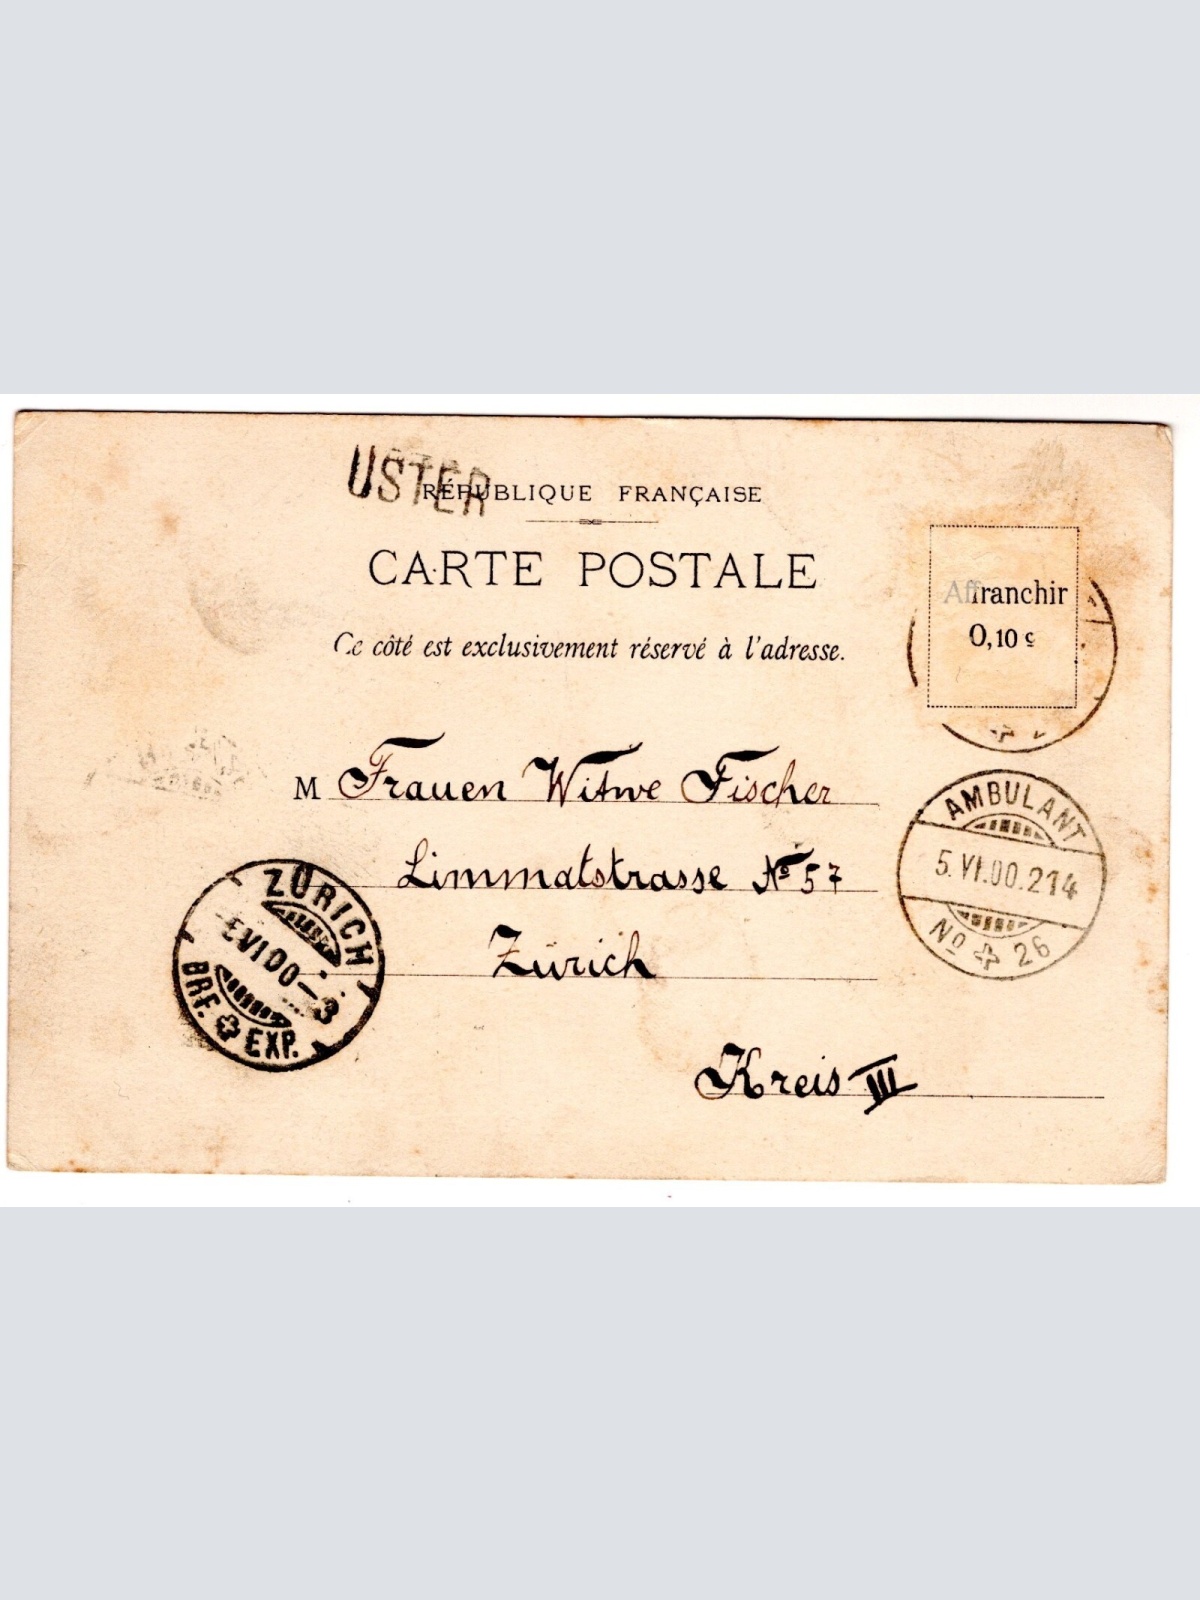 USTER
RÉPUBLIQUE FRANÇAISE
CARTE POSTALE
Ce côté est exclusivement réservé à l'adresse.
Affranchir
0,10 c
M Frauen Witwe Fischer
Limmatstrasse No 57
Zürich
Kreis III
AMBULANT
5.VI.00.214
No 26
ZÜRICH
5 VI 00-3
BRF. EXP.